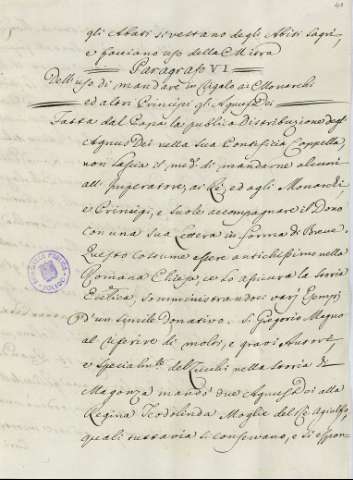 41
gli Abati si vestano degli Abiti Sagri,
e facciano uso della Mitra
Paragrafo VI
Dell'uso di mandare in Regalo ai Monarchi
ed altri Principi gli Agnus Dei
Fatta dal Papa la publica Distribuzione degl'
Agnus Dei nella Sua Pontificia Cappella,
non lascia il med. di mandarne alcuni
all' Imperatore, ai Re, ed agli Monarchi,
e Principi, e suole accompagnare il Dono
con una sua Lettera in forma di Breve.
Questo costume essere antichissimo nella
Romana Chiesa, ce lo assicura la Storia
Ecc.tica, somministrandoci varj Esempj
d'un simile donativo. S. Gregorio Magno
al riferire di molti, e gravi Autori,
e specialm.te del nella storia di
Magonza mandò due Agnus Dei alla
Regina Teodolinda Moglie del Re Agilulfo,
quali tuttavia si conservano, e si espon-